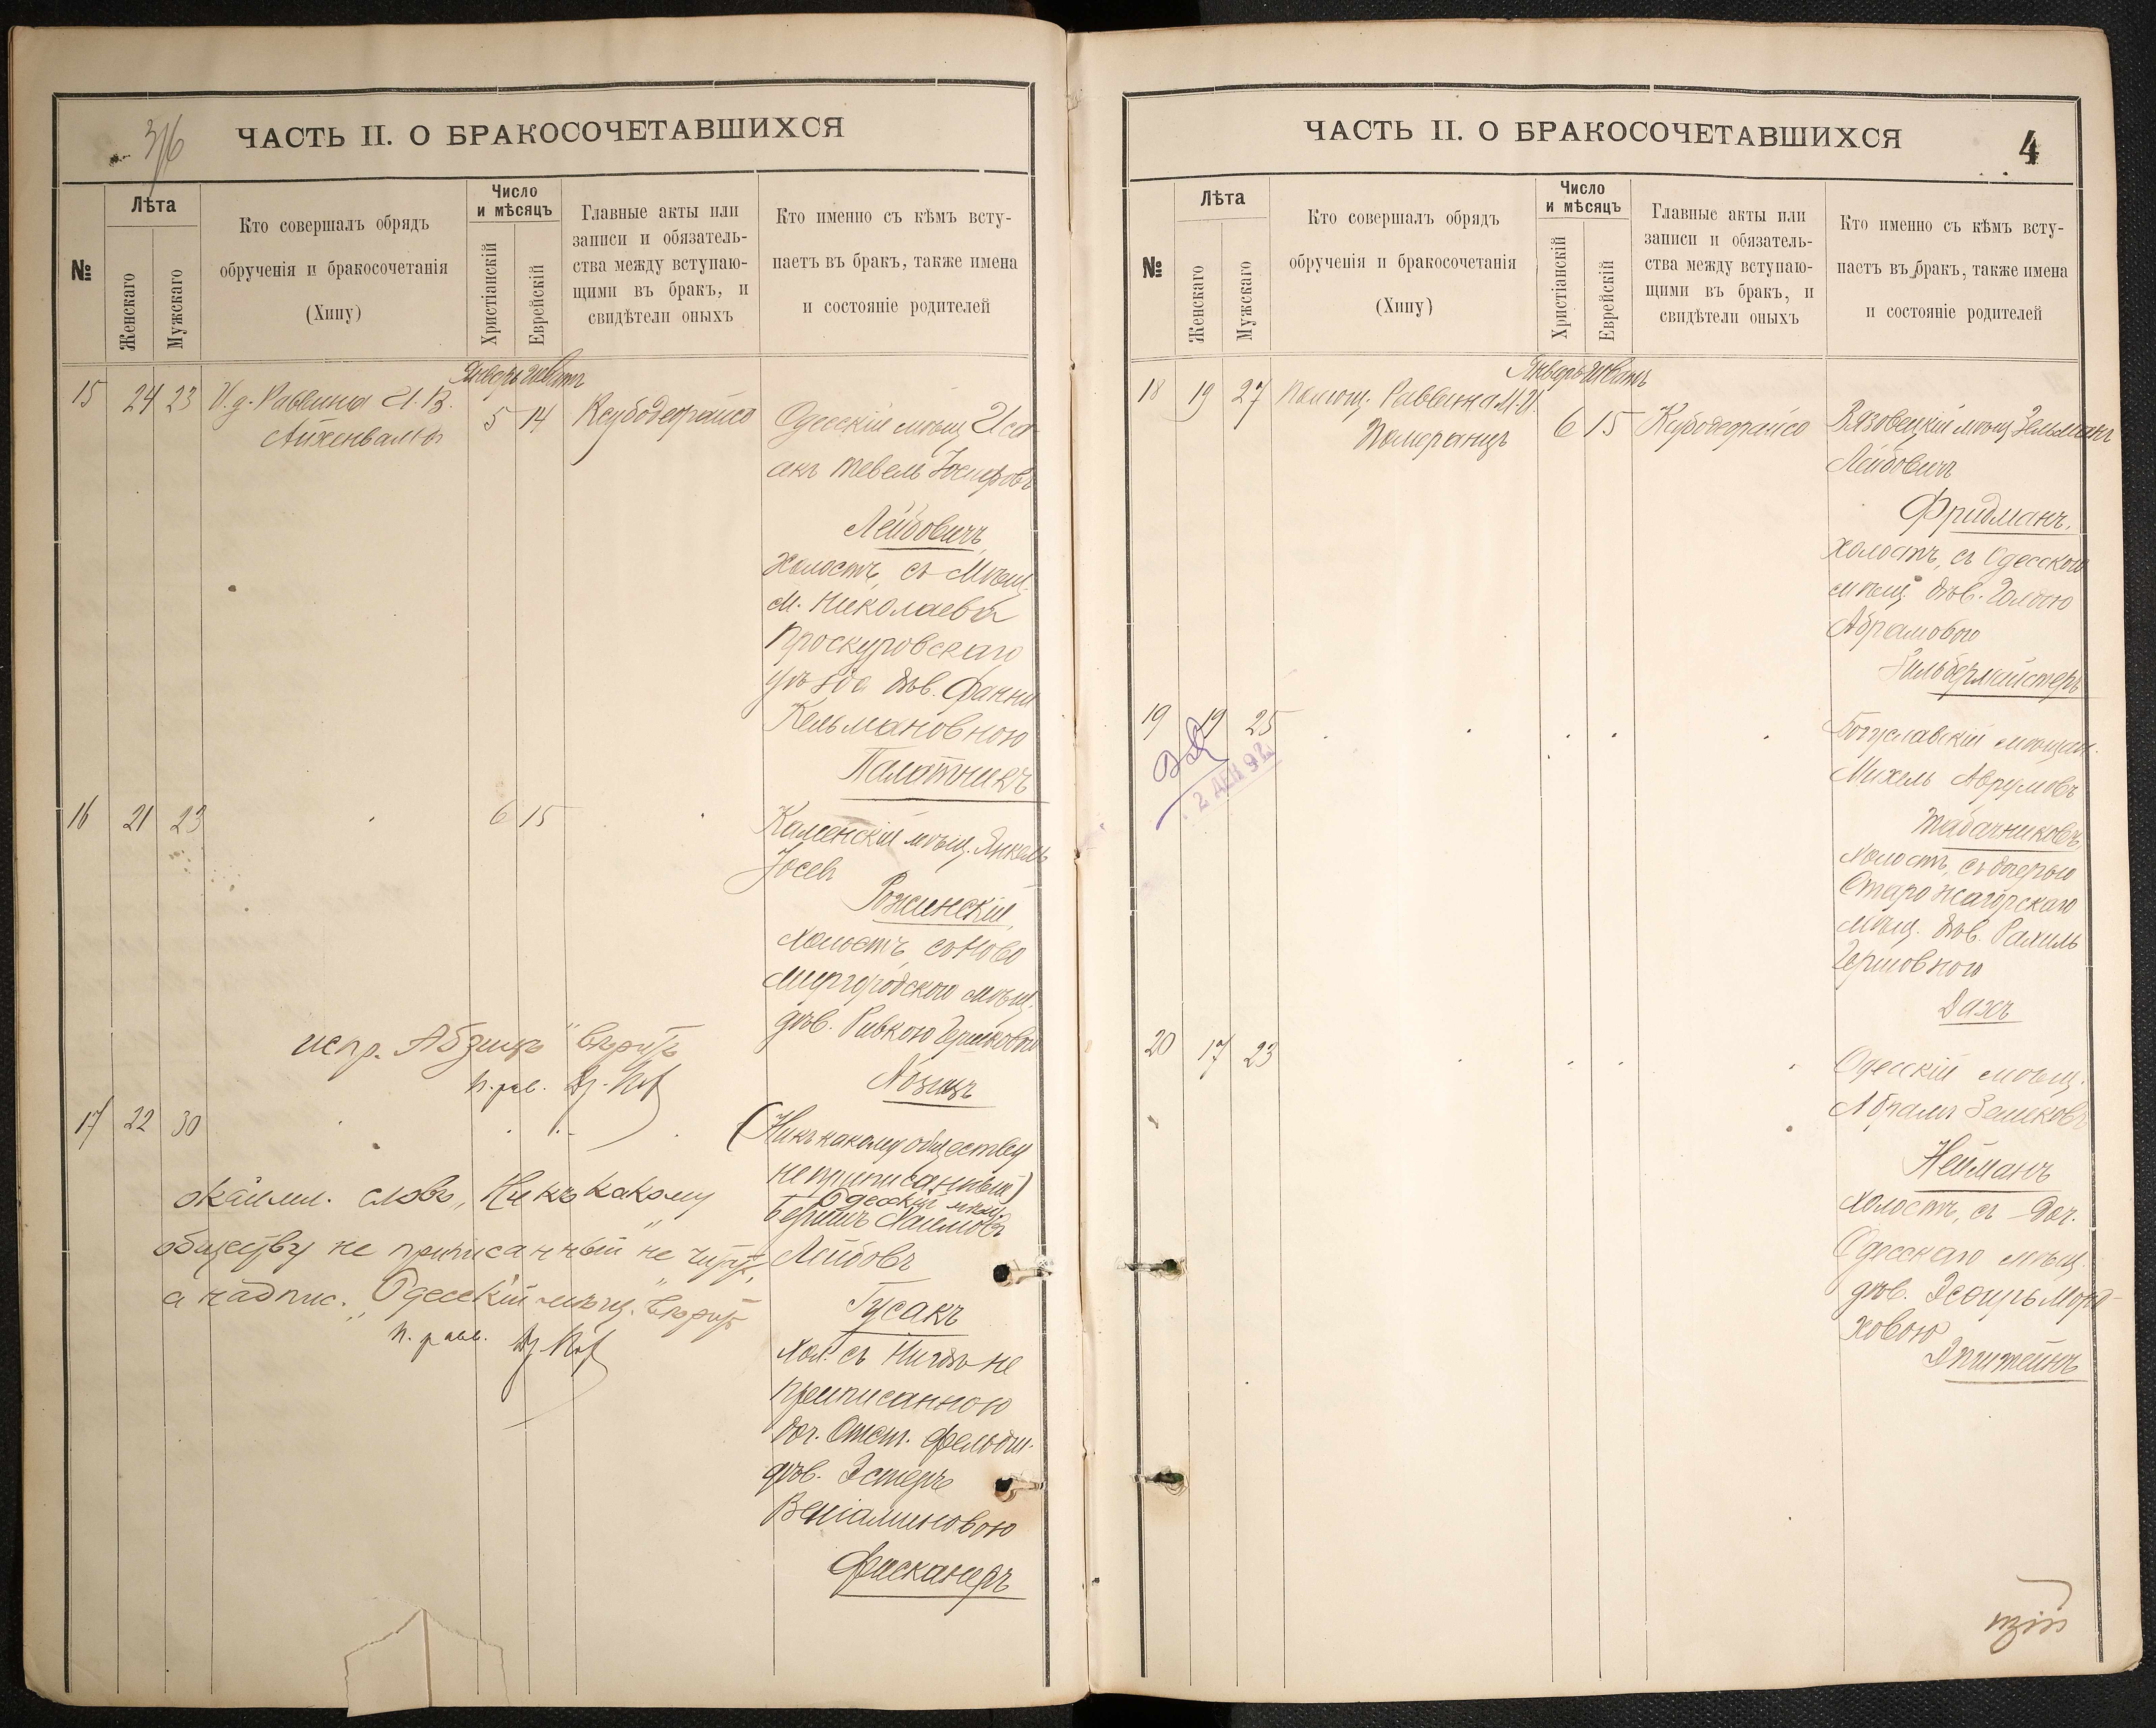 3/6
ЧАСТЬ II. О БРАКОСОЧЕТАВШИХСЯ
№
Лѣта
Женскаго
Мужскаго
Кто совершалъ обрядъ
обрученія и бракосочетанія
(Хипу)
Число
и мѣсяцъ
Христіанскій
Еврейскій
Главные акты или
записи и обязатель-
ства между вступаю-
щими въ бракъ, и
свидѣтели оныхъ
Кто именно съ кѣмъ всту-
паетъ въ бракъ, также имена
и состояніе родителей
Январь Шватъ
15 24 23 И. д. Раввина
Айхенвальд
5 14
Ксубодерайсо
Одесскій мѣщ Иса
акъ Тевель Іосифовъ
Лейбовичъ
холостъ, съ Мѣщ.
м. Николаева
Проскуровскаго
уѣзда дѣв. Фанни
Кельмановною
Палатникъ
16 21 23
6 15
Каменскій мѣщ. Янкель
Іосев
Рожинскій,
холостъ, съ Ново
миргородскою мѣщ.
дѣв. Ривкою Гершковою
Абзицъ
испр. „Абзицъ" вѣрить
п. рав.
17 22 30
(Никъ какому обществу
не приписанный)
Одесскій мѣщ.
Бершъ Хаимовъ
Лейбовъ
Гусакъ
хол. съ Нигдѣ не
приписанною
доч. Отст. фельдш.
дѣв. Эстеръ
Веніаминовою
Фисканеръ
слов. „Ни къ какому
обществу не приписанный" не чит.,
а надпис. „Одесскій мѣщ." вѣрить
п. равв.
ЧАСТЬ II. О БРАКОСОЧЕТАВШИХСЯ
4
№
Лѣта
Женскаго
Мужскаго
Кто совершалъ обрядъ
обрученія и бракосочетанія
(Хипу)
Число
и мѣсяцъ
Христіанскій
Еврейскій
Главные акты или
записи и обязатель-
ства между вступаю-
щими въ бракъ, и
свидѣтели оныхъ
Кто именно съ кѣмъ всту-
паетъ въ бракъ, также имена
и состояніе родителей
Январь Шватъ
18 19 27 Помощ. Раввина М. И.
Померанцъ
6 15
Ксубодерайсо
Вязовецкій мѣщ Зельманъ
Лейбовичъ
Фридманъ,
холостъ, съ Одесскою
мѣщ. дѣв. Голдою
Абрамовою
Зильбермейстеръ
19 19 25
2 ДЕК 92
Богуславскій мѣщан.
Михель Аврумовъ
Табачниковъ,
холостъ, съ дочерью
Старожагорскаго
мѣщ. дѣв. Рахиль
Гершовною
Дахъ
20 17 23
Одесскій мѣщ.
Абрамъ
Нейманъ
холостъ, съ доч.
Одесскаго мѣщ.
дѣв. Эсѳирь Морд-
ховою
Эпштейнъ